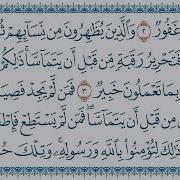 غَفُورٌ ٢ وَالَّذِينَ يُظَاهِرُونَ مِن نِّسَائِهِمْ ثُ
فَتَحْرِيرُ رَقَبَةٍ مِّن قَبْلِ أَن يَتَمَاسَّا ذَٰلِكُمْ
بِمَا تَعْمَلُونَ خَبِيرٌ ٣ فَمَن لَّمْ يَجِدْ فَصِيَ
مِن قَبْلِ أَن يَتَمَاسَّا فَمَن لَّمْ يَسْتَطِعْ فَإِطْ
ذَٰلِكَ لِتُؤْمِنُوا بِاللَّهِ وَرَسُولِهِ وَتِلْكَ حُ